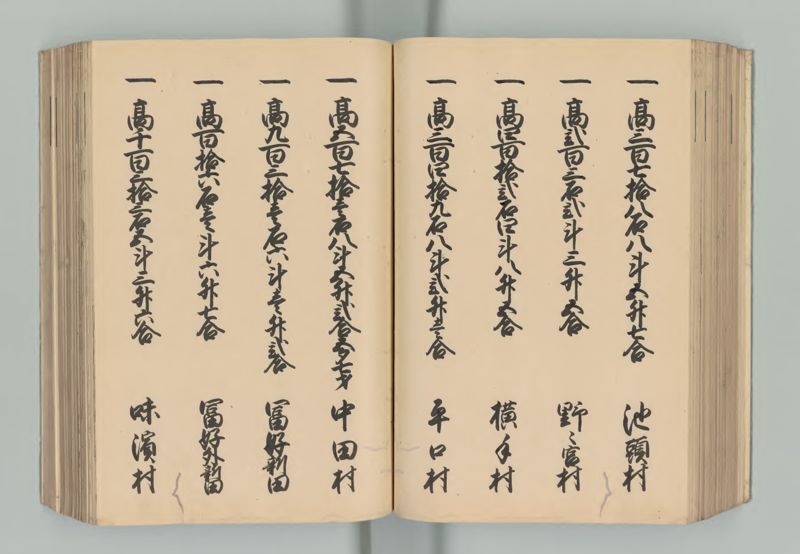 一 高三百七拾八石八斗五升七合 池頭村
一 高弐百三石弐斗三升五合 野々宮村
一 高四百拾弐石四斗八升五合 横手村
一 高三百四拾九石八斗弐升壱合 平口村
一 高五百七拾壱石八斗五升弐合五勺七才 中田村
一 高九百三拾壱石六斗壱升弐合 冨好新田
一 高百拾六石壱斗六升七合 冨好外新田
一 高千百三拾三石五斗三升六合 味濱村